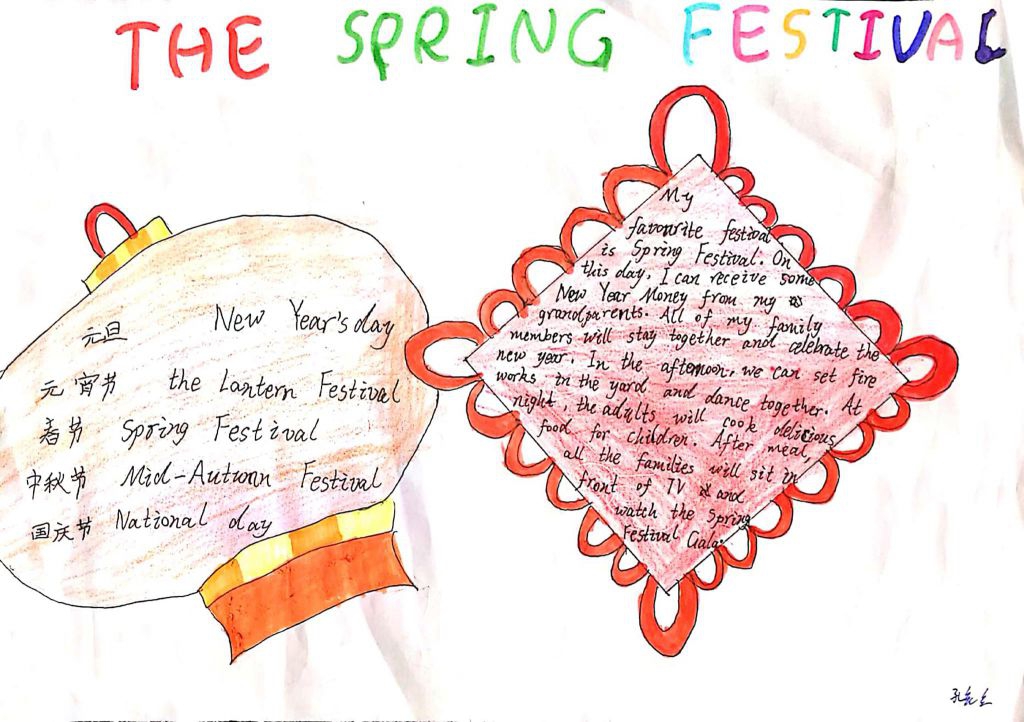 THE SPRING FESTIVAL
元旦 New Year's day
元宵节 the Lantern Festival
春节 Spring Festival
中秋节 Mid-Autumn Festival
国庆节 National day
My
favourite festival
is Spring Festival. On
this day, I can receive some
New Year Money from my
grandparents. All of my family
members will stay together and celebrate the
new year. In the afternoon, we can set fire
works in the yard and dance together. At
night, the adults will cook delicious
food for children. After meal,
all the families will sit in
front of TV and
watch the Spring
Festival Gala.
孔